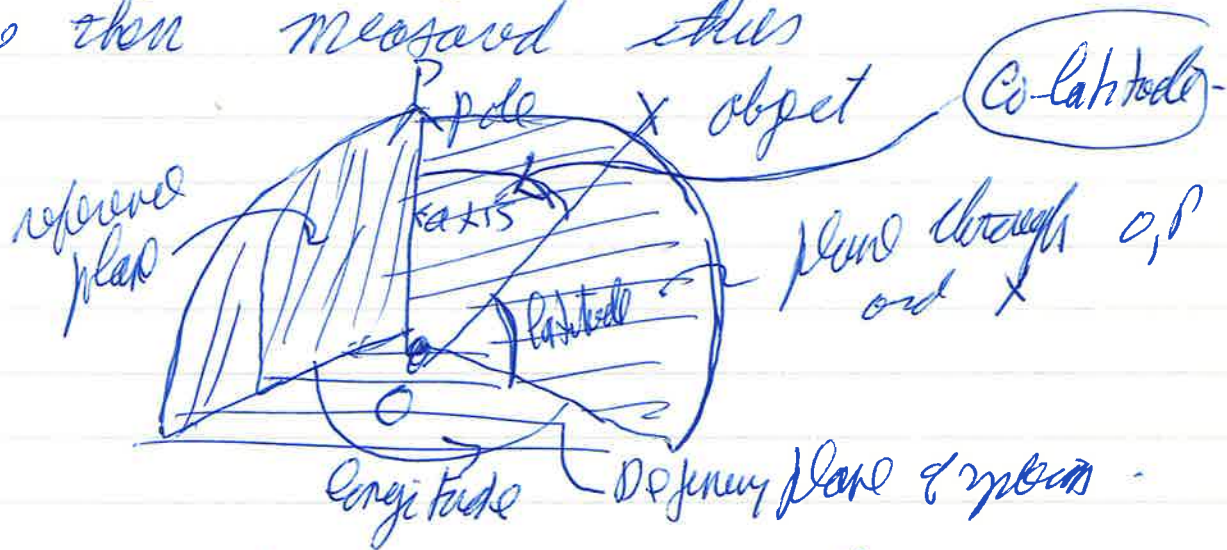 then measured thus
P
pole
X object
Co-latitude
reference
plane
axis
plane through O, P
and X
latitude
O
longitude
Defining plane of system